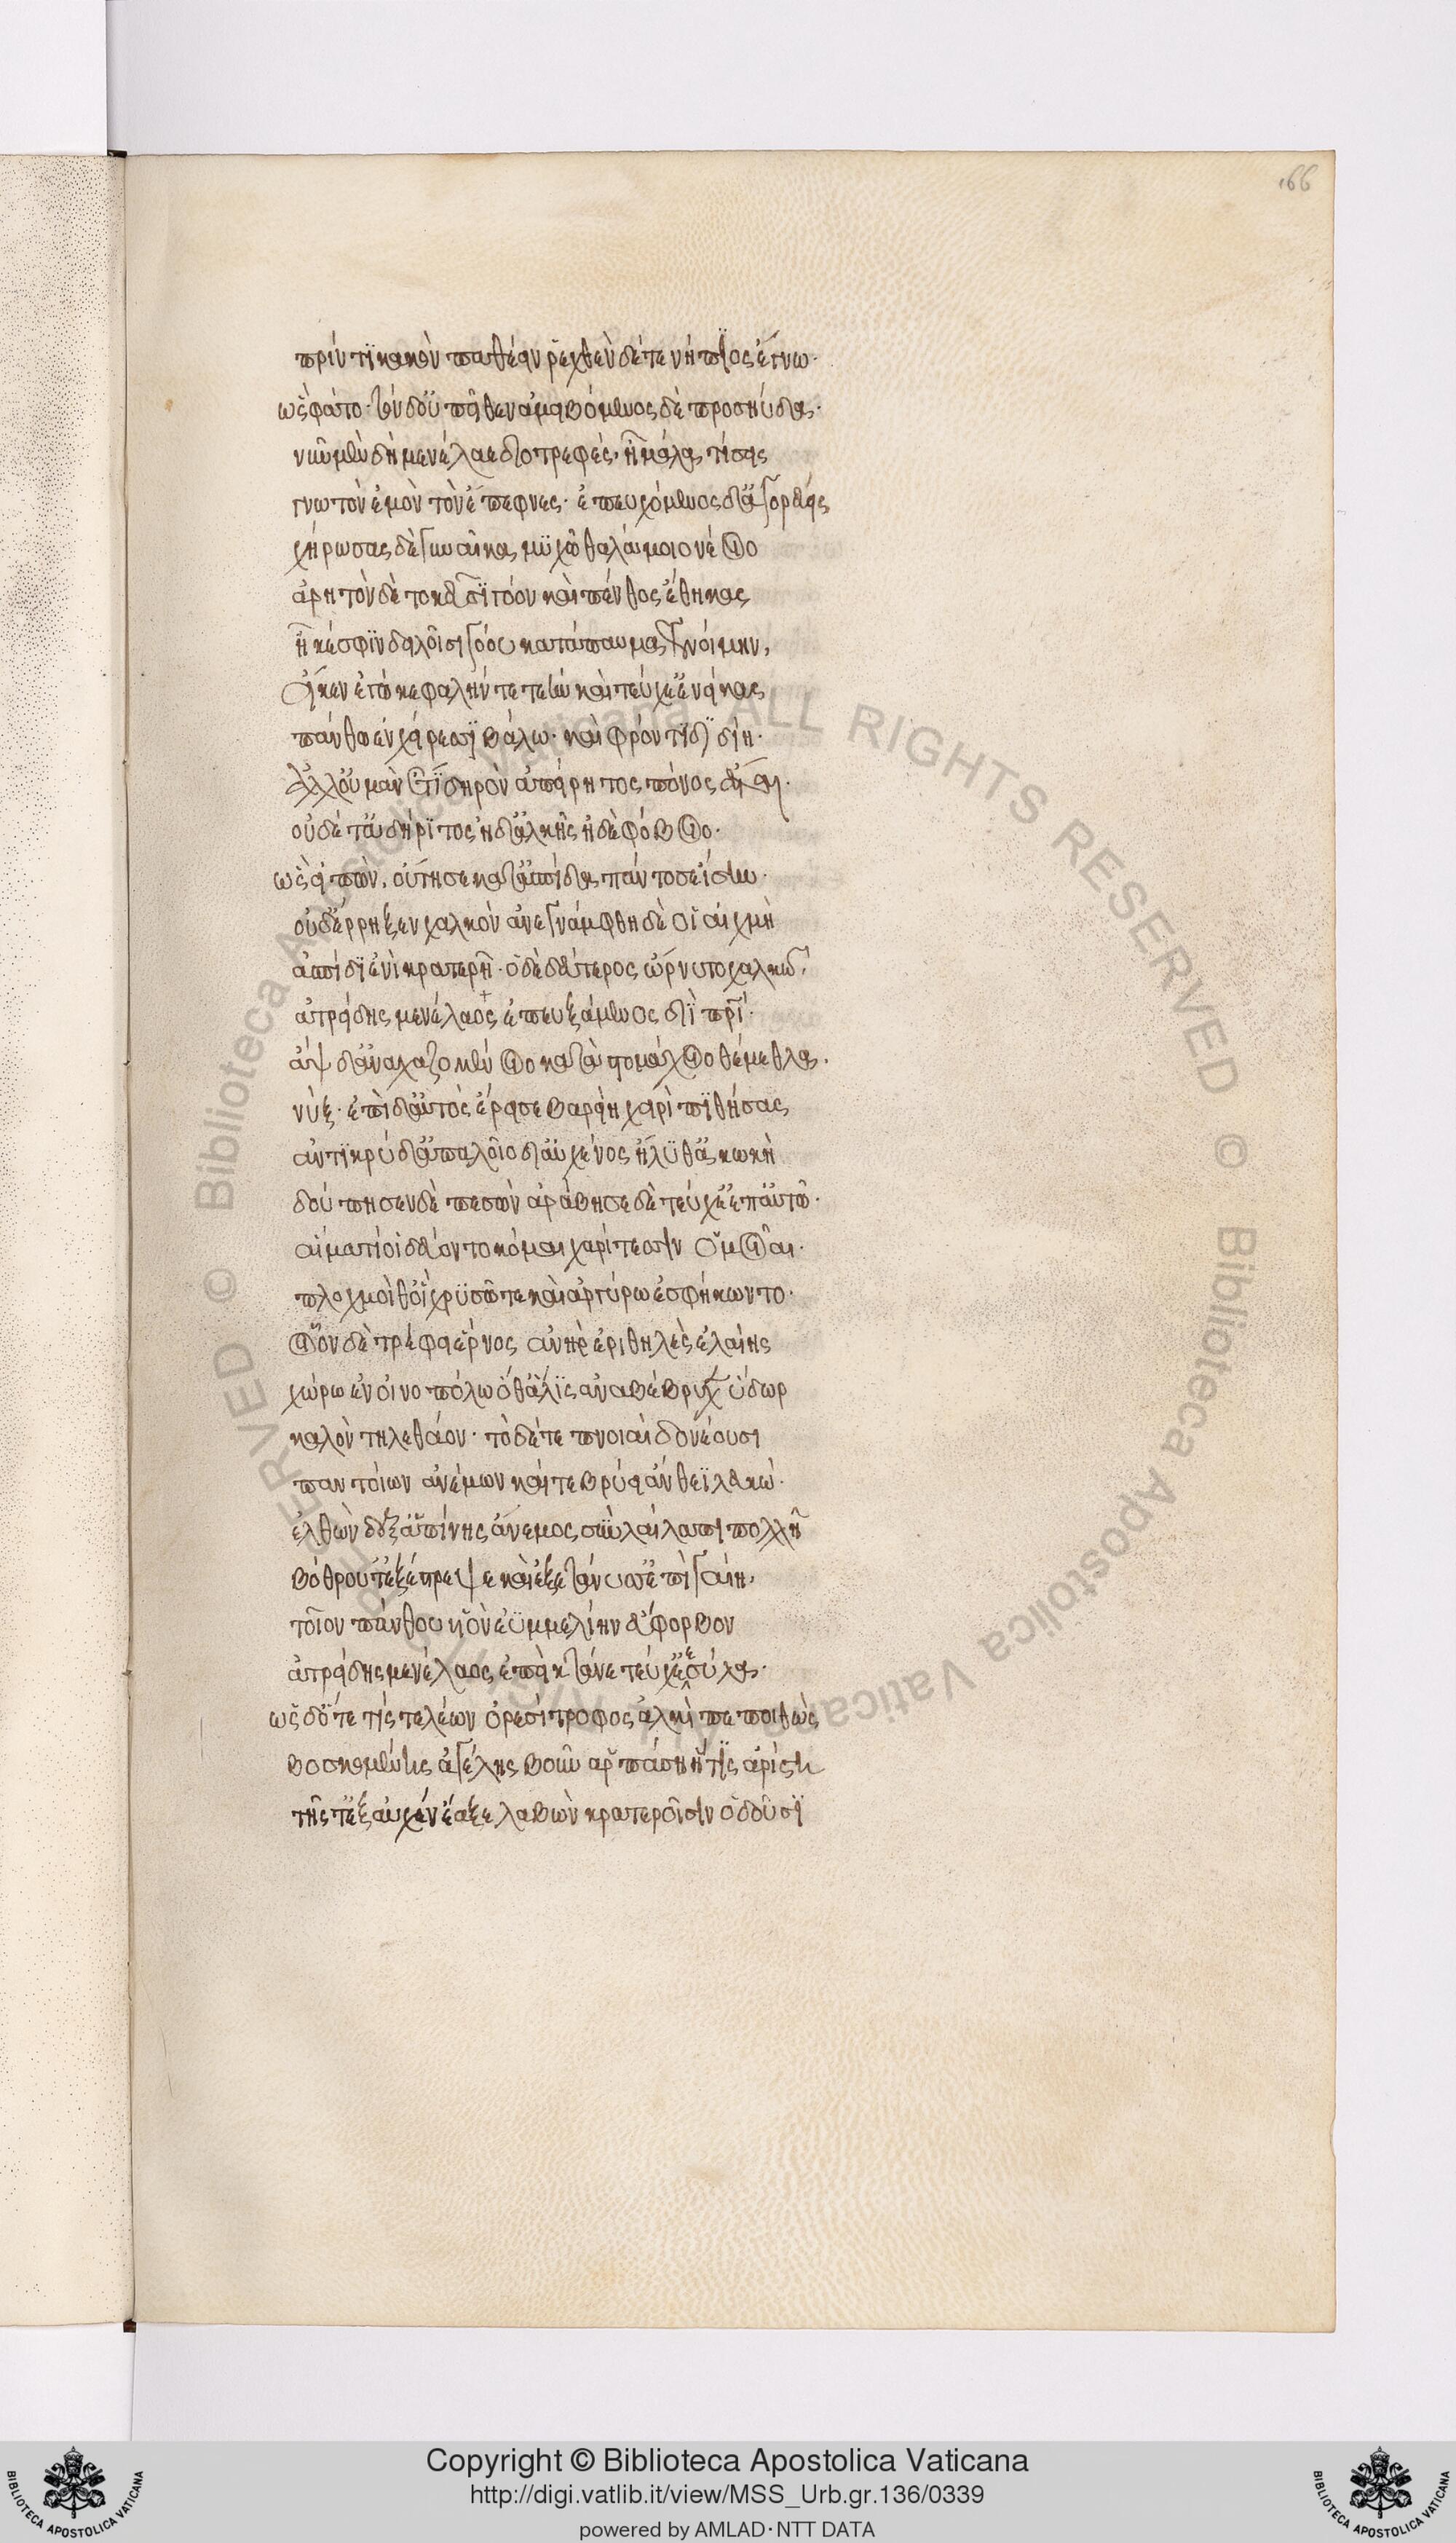 166
πρίν τι κακὸν παθέειν ῥεχθὲν δέ τε νήπιος ἔγνω·
ὣς φάτο· τὸν δ' οὐ πεῖθεν ἀμειβόμενος δὲ προσηύδα·
νῦν μὲν δὴ μενέλαε διοτρεφὲς· ἦ μάλα τίσεις
γνωτὸν ἐμὸν τὸν ἔπεφνες· ἐπευχόμενος δ' ἀγορεύεις
χήρωσας δὲ γυναῖκα μυχῶ θαλάμοιο νέοιο
ἀρητὸν δὲ τοκεῦσι γόον καὶ πένθος ἔθηκας
ἦ κέ σφιν δειλοῖσι γόου κατάπαυμα γενοίμην,
εἴ κεν ἐγὼ κεφαλήν τε τεὴν καὶ τεύχε' ἐνείκας
πάνθω ἐν χείρεσι βάλω· καὶ φρόντιδι δίη·
ἀλλ' οὐ μὰν ἔτι δηρὸν ἀπείρητος πόνος ἔσται·
οὐδέ τ' ἀδήριτος ἠδ' ἀλκῆς ἠδὲ φόβοιο·
ὣς εἰπὼν, οὔτησε κατ' ἀσπίδα πάντοσ' εἴσην·
οὐδ' ἔρρηξεν χαλκὸν ἀνεγνάμφθη δέ οἱ αἰχμὴ
ἀσπίδι ἐνὶ κρατερῆ· ὁ δὲ δεύτερος ὤρνυτο χαλκῶ·
ἀτρείδης μενέλαος ἐπευξάμενος διῒ πρί·
ἂψ δ' ἀναχαζομένοιο κατὰ στομάχοιο θέμεθλα·
νύξ· ἐπὶ δ' αὐτὸς ἔρεισε βαρείη χειρὶ πιθήσας
ἀντικρὺ δ' ἁπαλοῖο δι' αὐχένος ἤλυθ' ἀκωκὴ
δούπησεν δὲ πεσὼν ἀράβησε δὲ τεύχε' ἐπ' αὐτῶ·
αἵματί οἱ δεύοντο κόμαι χαρίτεσσιν ὁμοῖαι·
πλοχμοὶ θ' οἳ χρυσῶ τε καὶ ἀργύρω ἐσφήκωντο·
οἷον δὲ τρέφει ἔρνος ἀνὴρ ἐριθηλὲς ἐλαίης
χώρω ἐν οἰνοπόλω ὅθ' ἅλις ἀναβέβρυχεν ὕδωρ
καλὸν τηλεθάον· τὸ δέ τε πνοιαὶ δονέουσι
παντοίων ἀνέμων καί τε βρύει ἄνθεϊ λευκῶ·
ἐλθὼν δ' ἐξαπίνης ἄνεμος σὺν λαίλαπι πολλῆ
βόθρου τ' ἐξέστρεψε καὶ ἐξετάνυσσ' ἐπὶ γαίη·
τοῖον πάνθου υἱὸν ἐϋμμελίην εὔφορβον
ἀτρείδης μενέλαος ἐπεὶ κτάνε τεύχε' ἐσύλα·
ὡς δ' ὅτε τίς τε λέων ὀρεσίτροφος ἀλκὶ πεποιθὼς
βοσκομένης ἀγέλης βοῦν ἁρπάση ἥτις ἀρίστη
τῆς τ' ἐξ αὐχέν' ἔαξε λαβὼν κρατεροῖσιν ὀδοῦσι
© Biblioteca Apostolica Vaticana ALL RIGHTS RESERVED © Biblioteca Apostolica Vaticana ALL RIGHTS RESERVED
BIBLIOTECA APOSTOLICA VATICANA
Copyright © Biblioteca Apostolica Vaticana
http://digi.vatlib.it/view/MSS_Urb.gr.136/0339
powered by AMLAD·NTT DATA
BIBLIOTECA APOSTOLICA VATICANA